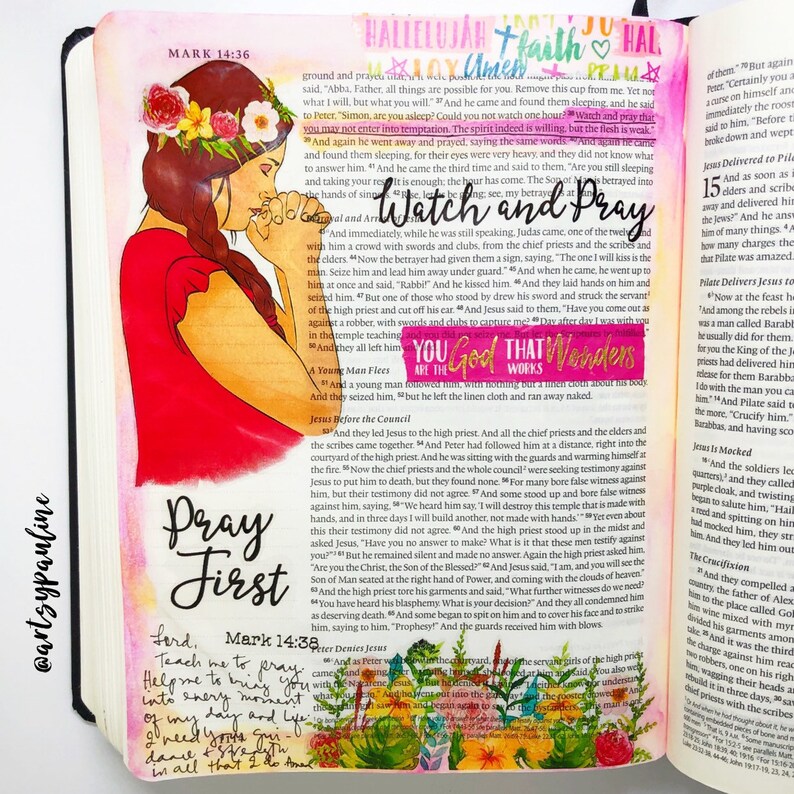 HALLELUJAH faith HAL
JOY Amen PRAY
MARK 14:36
ground and prayed that, if it were possible, the hour might pass from him.
said, "Abba, Father, all things are possible for you. Remove this cup from me. Yet not
what I will, but what you will." 37 And he came and found them sleeping, and he said
to Peter, "Simon, are you asleep? Could you not watch one hour? 38 Watch and pray that
you may not enter into temptation. The spirit indeed is willing, but the flesh is weak."
39 And again he went away and prayed, saying the same words. 40 And again he came
and found them sleeping, for their eyes were very heavy, and they did not know what
to answer him. 41 And he came the third time and said to them, "Are you still sleeping
and taking your rest? It is enough; the hour has come. The Son of Man is betrayed into
the hands of sinners. 42 Rise, let us be going; see, my betrayer is at
Watch and Pray
Betrayal and Arrest of Jesus
43 And immediately, while he was still speaking, Judas came, one of the twelve, and
with him a crowd with swords and clubs, from the chief priests and the scribes and
the elders. 44 Now the betrayer had given them a sign, saying, "The one I will kiss is the
man. Seize him and lead him away under guard." 45 And when he came, he went up
to him at once and said, "Rabbi!" And he kissed him. 46 And they laid hands on him and
seized him. 47 But one of those who stood by drew his sword and struck the servant
of the high priest and cut off his ear. 48 And Jesus said to them, "Have you come out as
against a robber, with swords and clubs to capture me? 49 Day after day I was with you
in the temple teaching, and you did not seize me. But let the Scriptures be fulfilled."
50 And they all left him
YOU ARE THE God THAT WORKS Wonders
A Young Man Flees
51 And a young man followed him, with nothing but a linen cloth about his body.
And they seized him, 52 but he left the linen cloth and ran away naked.
Jesus Before the Council
53 And they led Jesus to the high priest. And all the chief priests and the elders and
the scribes came together. 54 And Peter had followed him at a distance, right into the
courtyard of the high priest. And he was sitting with the guards and warming himself at
the fire. 55 Now the chief priests and the whole council2 were seeking testimony against
Jesus to put him to death, but they found none. 56 For many bore false witness against
him, but their testimony did not agree. 57 And some stood up and bore false witness
against him, saying, 58 "We heard him say, 'I will destroy this temple that is made with
hands, and in three days I will build another, not made with hands.'" 59 Yet even about
this their testimony did not agree. 60 And the high priest stood up in the midst and
asked Jesus, "Have you no answer to make? What is it that these men testify against
you?" 61 But he remained silent and made no answer. Again the high priest asked him,
"Are you the Christ, the Son of the Blessed?" 62 And Jesus said, "I am, and you will see the
Son of Man seated at the right hand of Power, and coming with the clouds of heaven."
63 And the high priest tore his garments and said, "What further witnesses do we need?
64 You have heard his blasphemy. What is your decision?" And they all condemned him
as deserving death. 65 And some began to spit on him and to cover his face and to strike
him, saying to him, "Prophesy!" And the guards received him with blows.
Peter Denies Jesus
66 And as Peter was below in the courtyard, one of the servant girls of the high
Pray
First
Mark 14:38
Lord,
Teach me to pray.
Help me to bring you
into every moment
of my day and life.
I need your gui-
dance & strength
in all that I do. Amen
@artsypauline
of them." 70 But again
Peter, "Certainly you a
a curse on himself and
immediately the rooste
said to him, "Before th
broke down and wept
Jesus Delivered to Pila
15 And as soon as i
elders and scribe
away and delivered him
the Jews?" And he answ
him of many things. 4 A
how many charges they
that Pilate was amazed.
Pilate Delivers Jesus to
6 Now at the feast he
7 And among the rebels in
was a man called Barabb
he usually did for them.
for you the King of the J
priests had delivered him
release for them Barabbas
I do with the man you call
him." 14 And Pilate said to
the more, "Crucify him."
Barabbas, and having sco
Jesus Is Mocked
16 And the soldiers led
quarters), and they called
purple cloak, and twisting
saying, "Hail,
a reed and spitting on him
had mocked him, they stri
him. And they led him out
The Crucifixion
21 And they compelled a
country, the father of Alex
him to the place called Gol
him wine mixed with myr
divided his garments amon
take. 25 And it was the third
the charge against him read
two robbers, one on his righ
him, wagging their heads a
rebuild it in three days, 30 sav
chief priests with the scribes